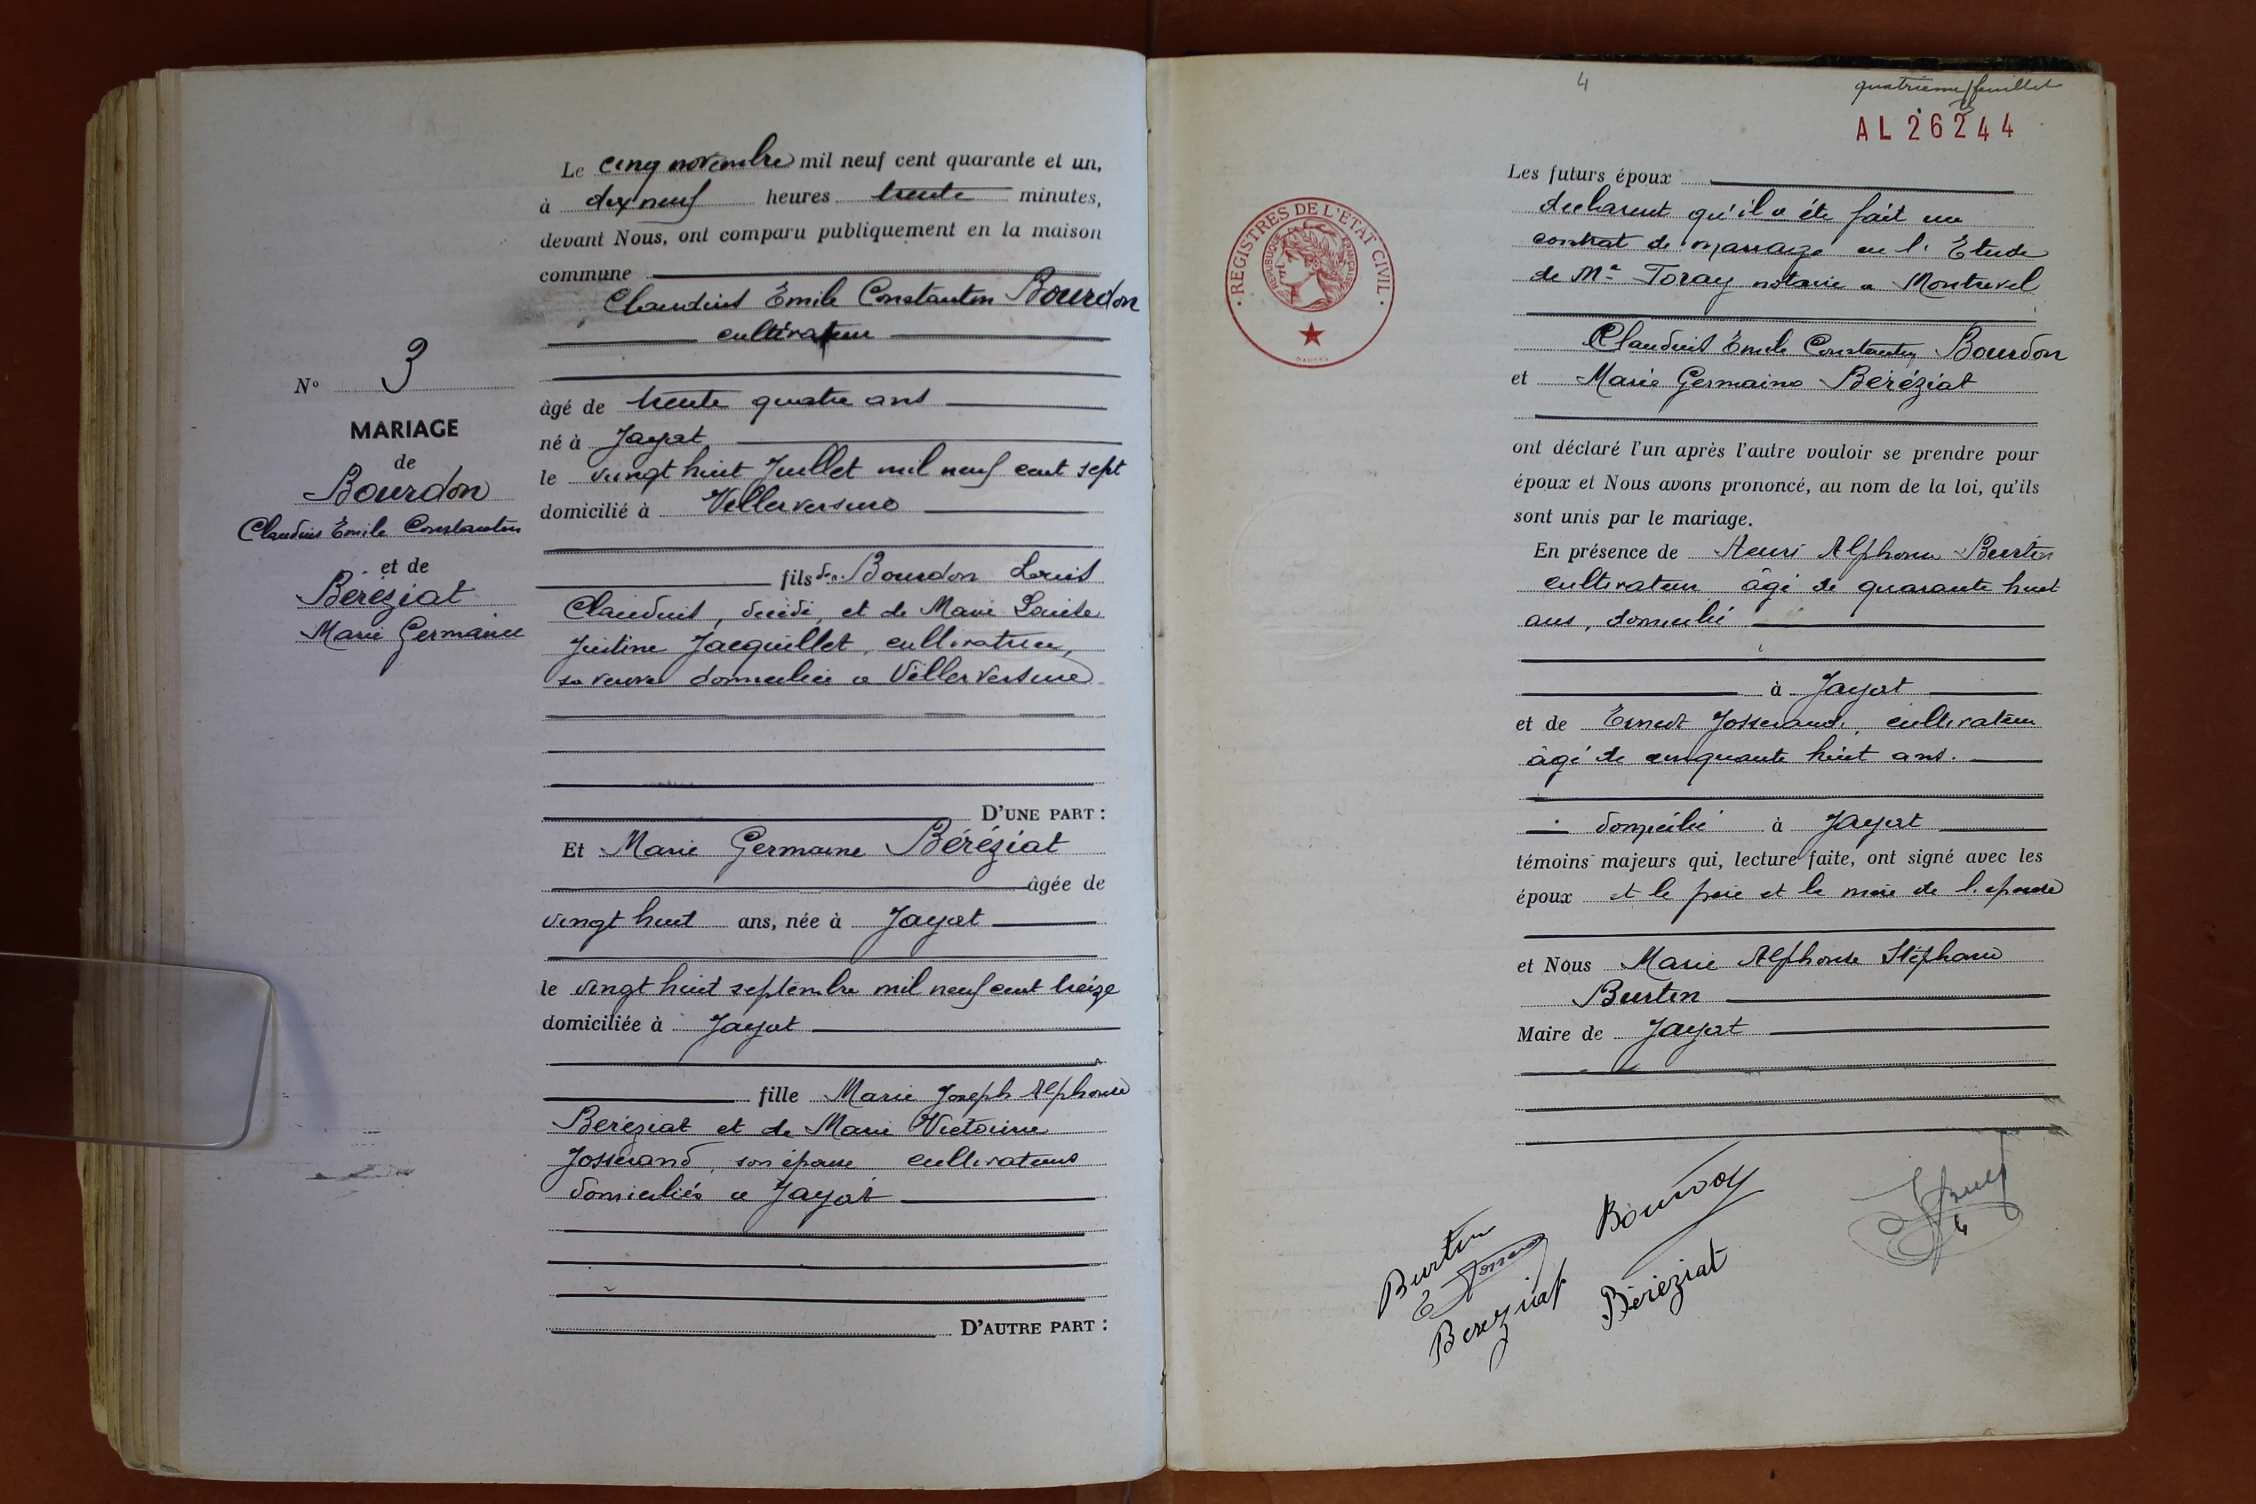 Le cinq novembre mil neuf cent quarante et un,
à dix neuf heures trente minutes,
devant Nous, ont comparu publiquement en la maison
commune
Claudius Émile Constantin Bourdon
cultivateur
N° 3
MARIAGE
de
Bourdon
Claudius Émile Constantin
et de
Béréziat
Marie Germaine
âgé de trente quatre ans
né à Jayat
le vingt huit Juillet mil neuf cent sept
domicilié à Villereversure
fils de Bourdon Louis
Claudius, décédé, et de Marie Louise
Justine Jacquillet, cultivatrice,
sa veuve domiciliée a Villereversure
D'UNE PART :
Et Marie Germaine Béréziat
âgée de
vingt huit ans, née à Jayat
le vingt huit septembre mil neuf cent treize
domiciliée à Jayat
fille Marie Joseph Alphonse
Béréziat et de Marie Victorine
Josserand, son épouse cultivateurs
domiciliés a Jayat
D'AUTRE PART :
4
quatrième feuillet
AL 26244
REGISTRES DE L'ÉTAT CIVIL
RÉPUBLIQUE FRANÇAISE
Les futurs époux
déclarent qu'il a été fait un
contrat de mariage en l'Etude
de Me Toray notaire a Montrevel
Claudius Émile Constantin Bourdon
et Marie Germaine Béréziat
ont déclaré l'un après l'autre vouloir se prendre pour
époux et Nous avons prononcé, au nom de la loi, qu'ils
sont unis par le mariage.
En présence de Henri Alphonse Burtin
cultivateur âgé de quarante huit
ans, domicilié
à Jayat
et de Ernest Josserand, cultivateur
âgé de cinquante huit ans.
domicilié à Jayat
témoins majeurs qui, lecture faite, ont signé avec les
époux et le père et la mère de l'épouse
et Nous Marie Alphonse Stéphane
Burtin
Maire de Jayat
Burtin
Bourdon
E Josserand
Bereziat
Béréziat